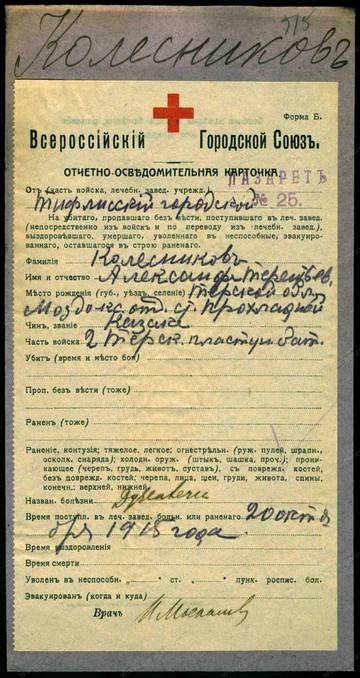 515
Колесниковъ
Форма Б.
Всероссійскій Городской Союзъ.
ОТЧЕТНО-ОСВѢДОМИТЕЛЬНАЯ КАРТОЧКА
ЛАЗАРЕТЪ
От (часть войска, лечебн. завед. учрежд.)
№ 25.
Тифлисскій городской
На убитаго, пропавшаго безъ вѣсти, поступившаго въ леч. завед.
(непосредственно изъ войскъ и по переводу изъ лечебн. завед.),
выздоровѣвшаго, умершаго, уволеннаго въ неспособные, эвакуиро-
ваннаго, оставшагося въ строю раненаго.
Фамилія Колесниковъ
Имя и отчество Александръ Терентьев.
Мѣсто рожденія (губ., уѣзд, селеніе) Терской обл.
Моздокс. отд. ст. Прохладной
Чинъ, званіе Казакъ
Часть войска 2 Терск. пластун. бат.
Убитъ (время и мѣсто боя)
Проп. безъ вѣсти (тоже)
Раненъ (тоже)
Раненіе, контузія; тяжелое, легкое; огнестрѣльн. (руж. пулей, шрапн.,
осколк. снаряда); холодн. оруж. (штыкъ, шашка, проч.); прони-
кающее (черепъ, грудь, животъ, суставъ), съ поврежд. костей,
безъ поврежд. костей; черепа, лица, шеи, груди, живота, спины,
конечн.: верхней, нижней.
Назван. болѣзни
Время поступл. въ леч. завед. больн. или раненаго 20 октя
бря 1915 года
Время выздоровленія
Время смерти
Уволенъ въ неспособн. „ “ ст. „ “ пунк. роспис. бол.
Эвакуированъ (когда и куда)
Врачъ